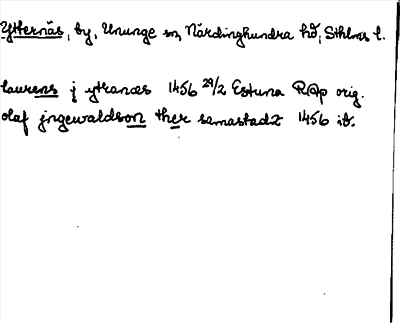 Ytternäs, by, Ununge sn, Närdinghundra hd, Sthlms l.
laurens j ytranæs 1456 29/2 Estuna RAp orig.
olaf jngewaldson ther samastadz 1456 ib.